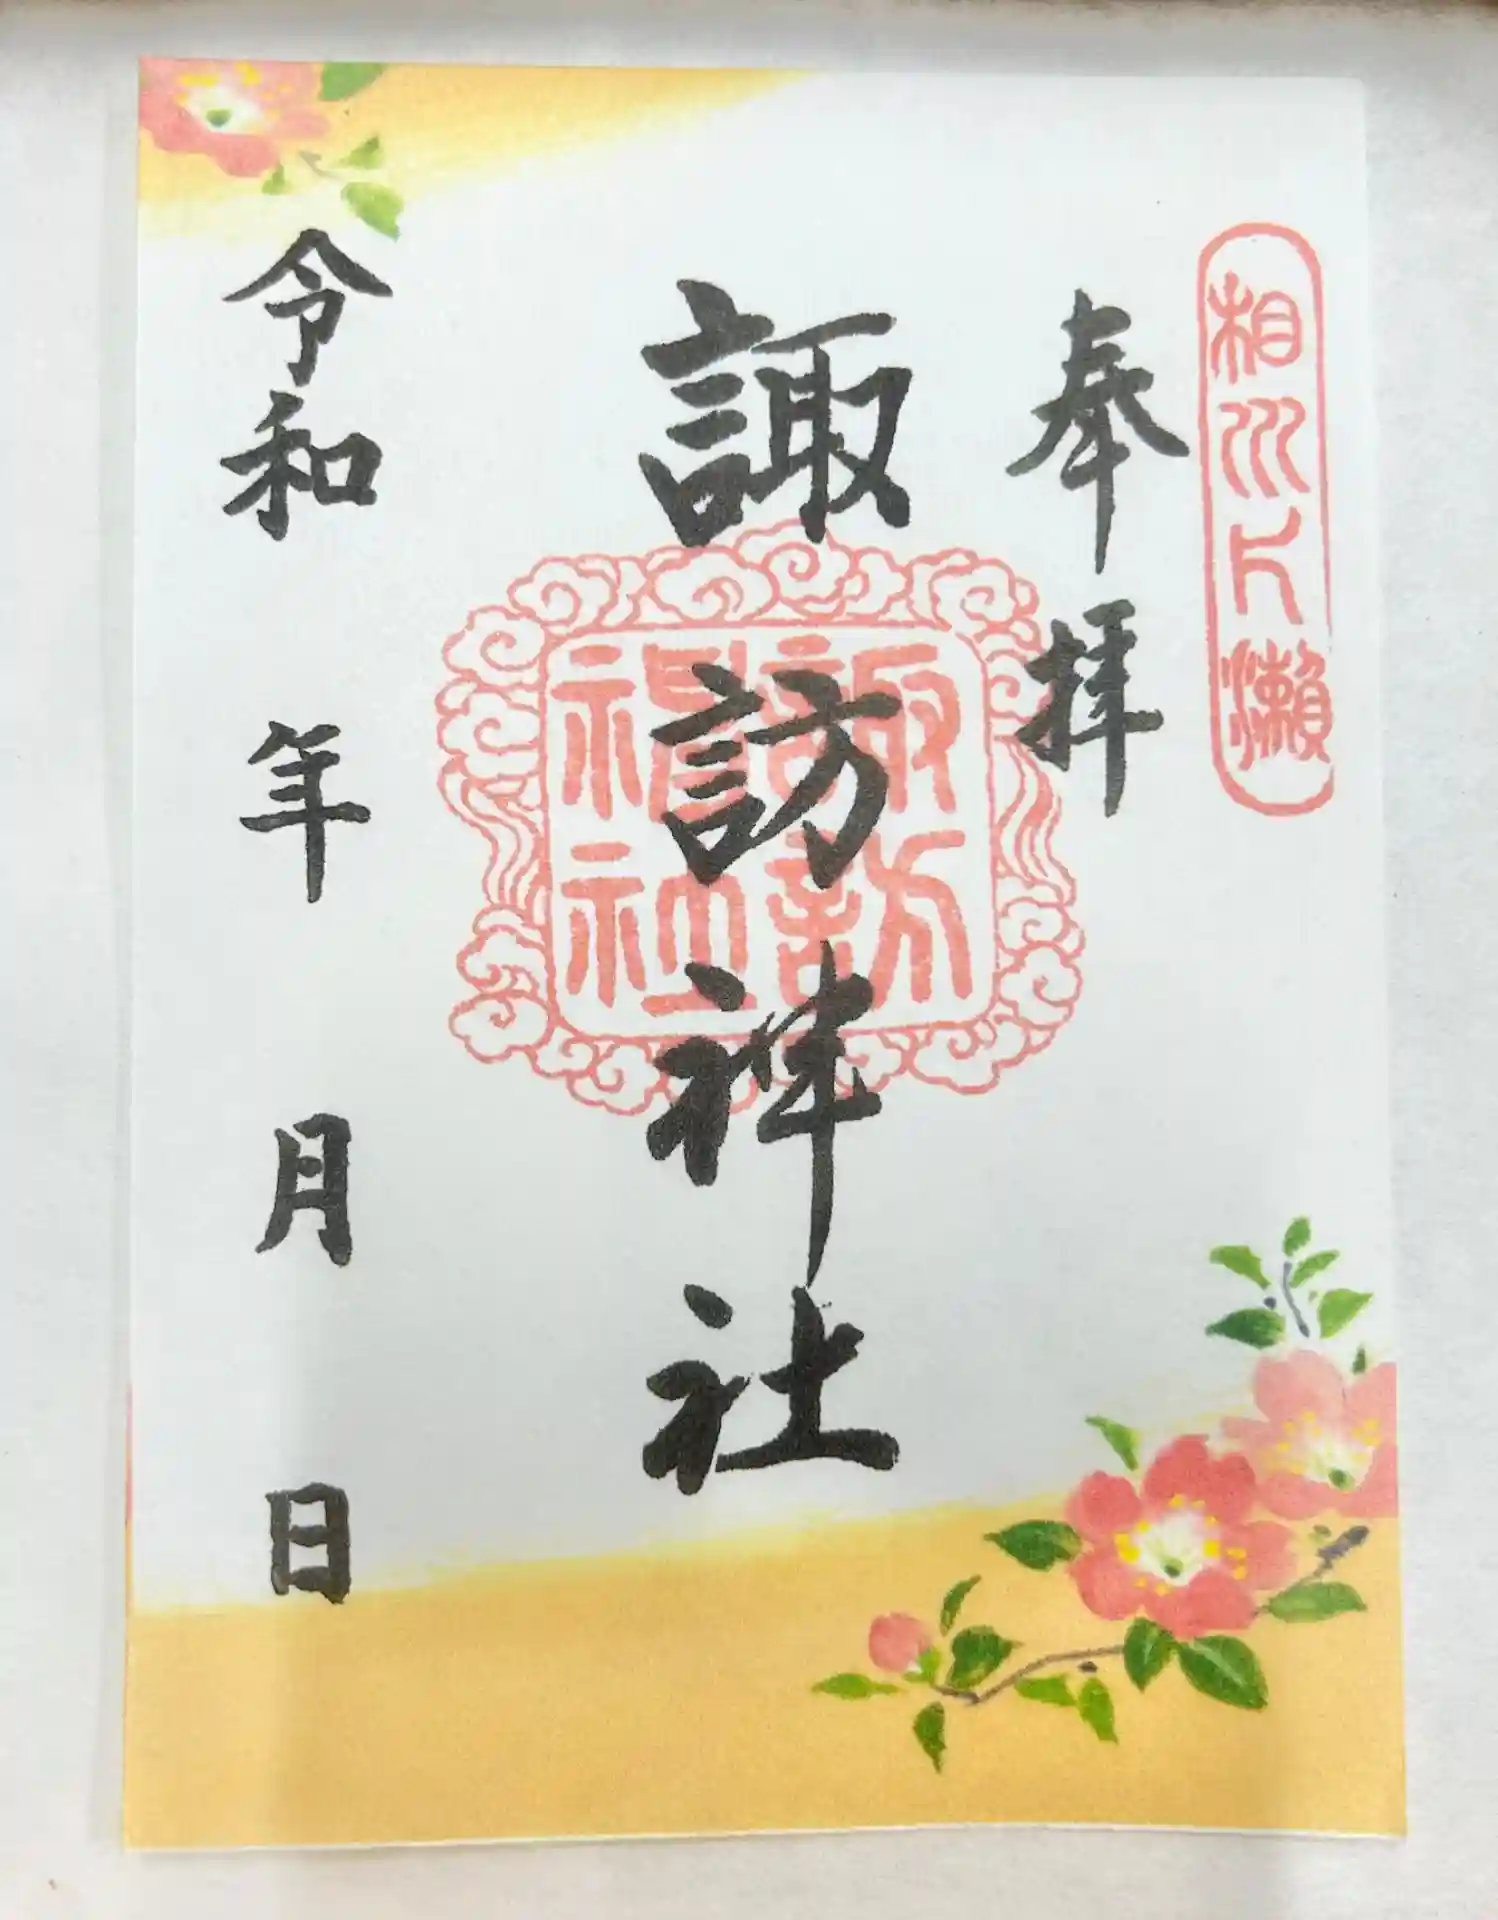 相州片瀨
奉拝
諏訪神社
諏訪
神社
令和 年 月 日